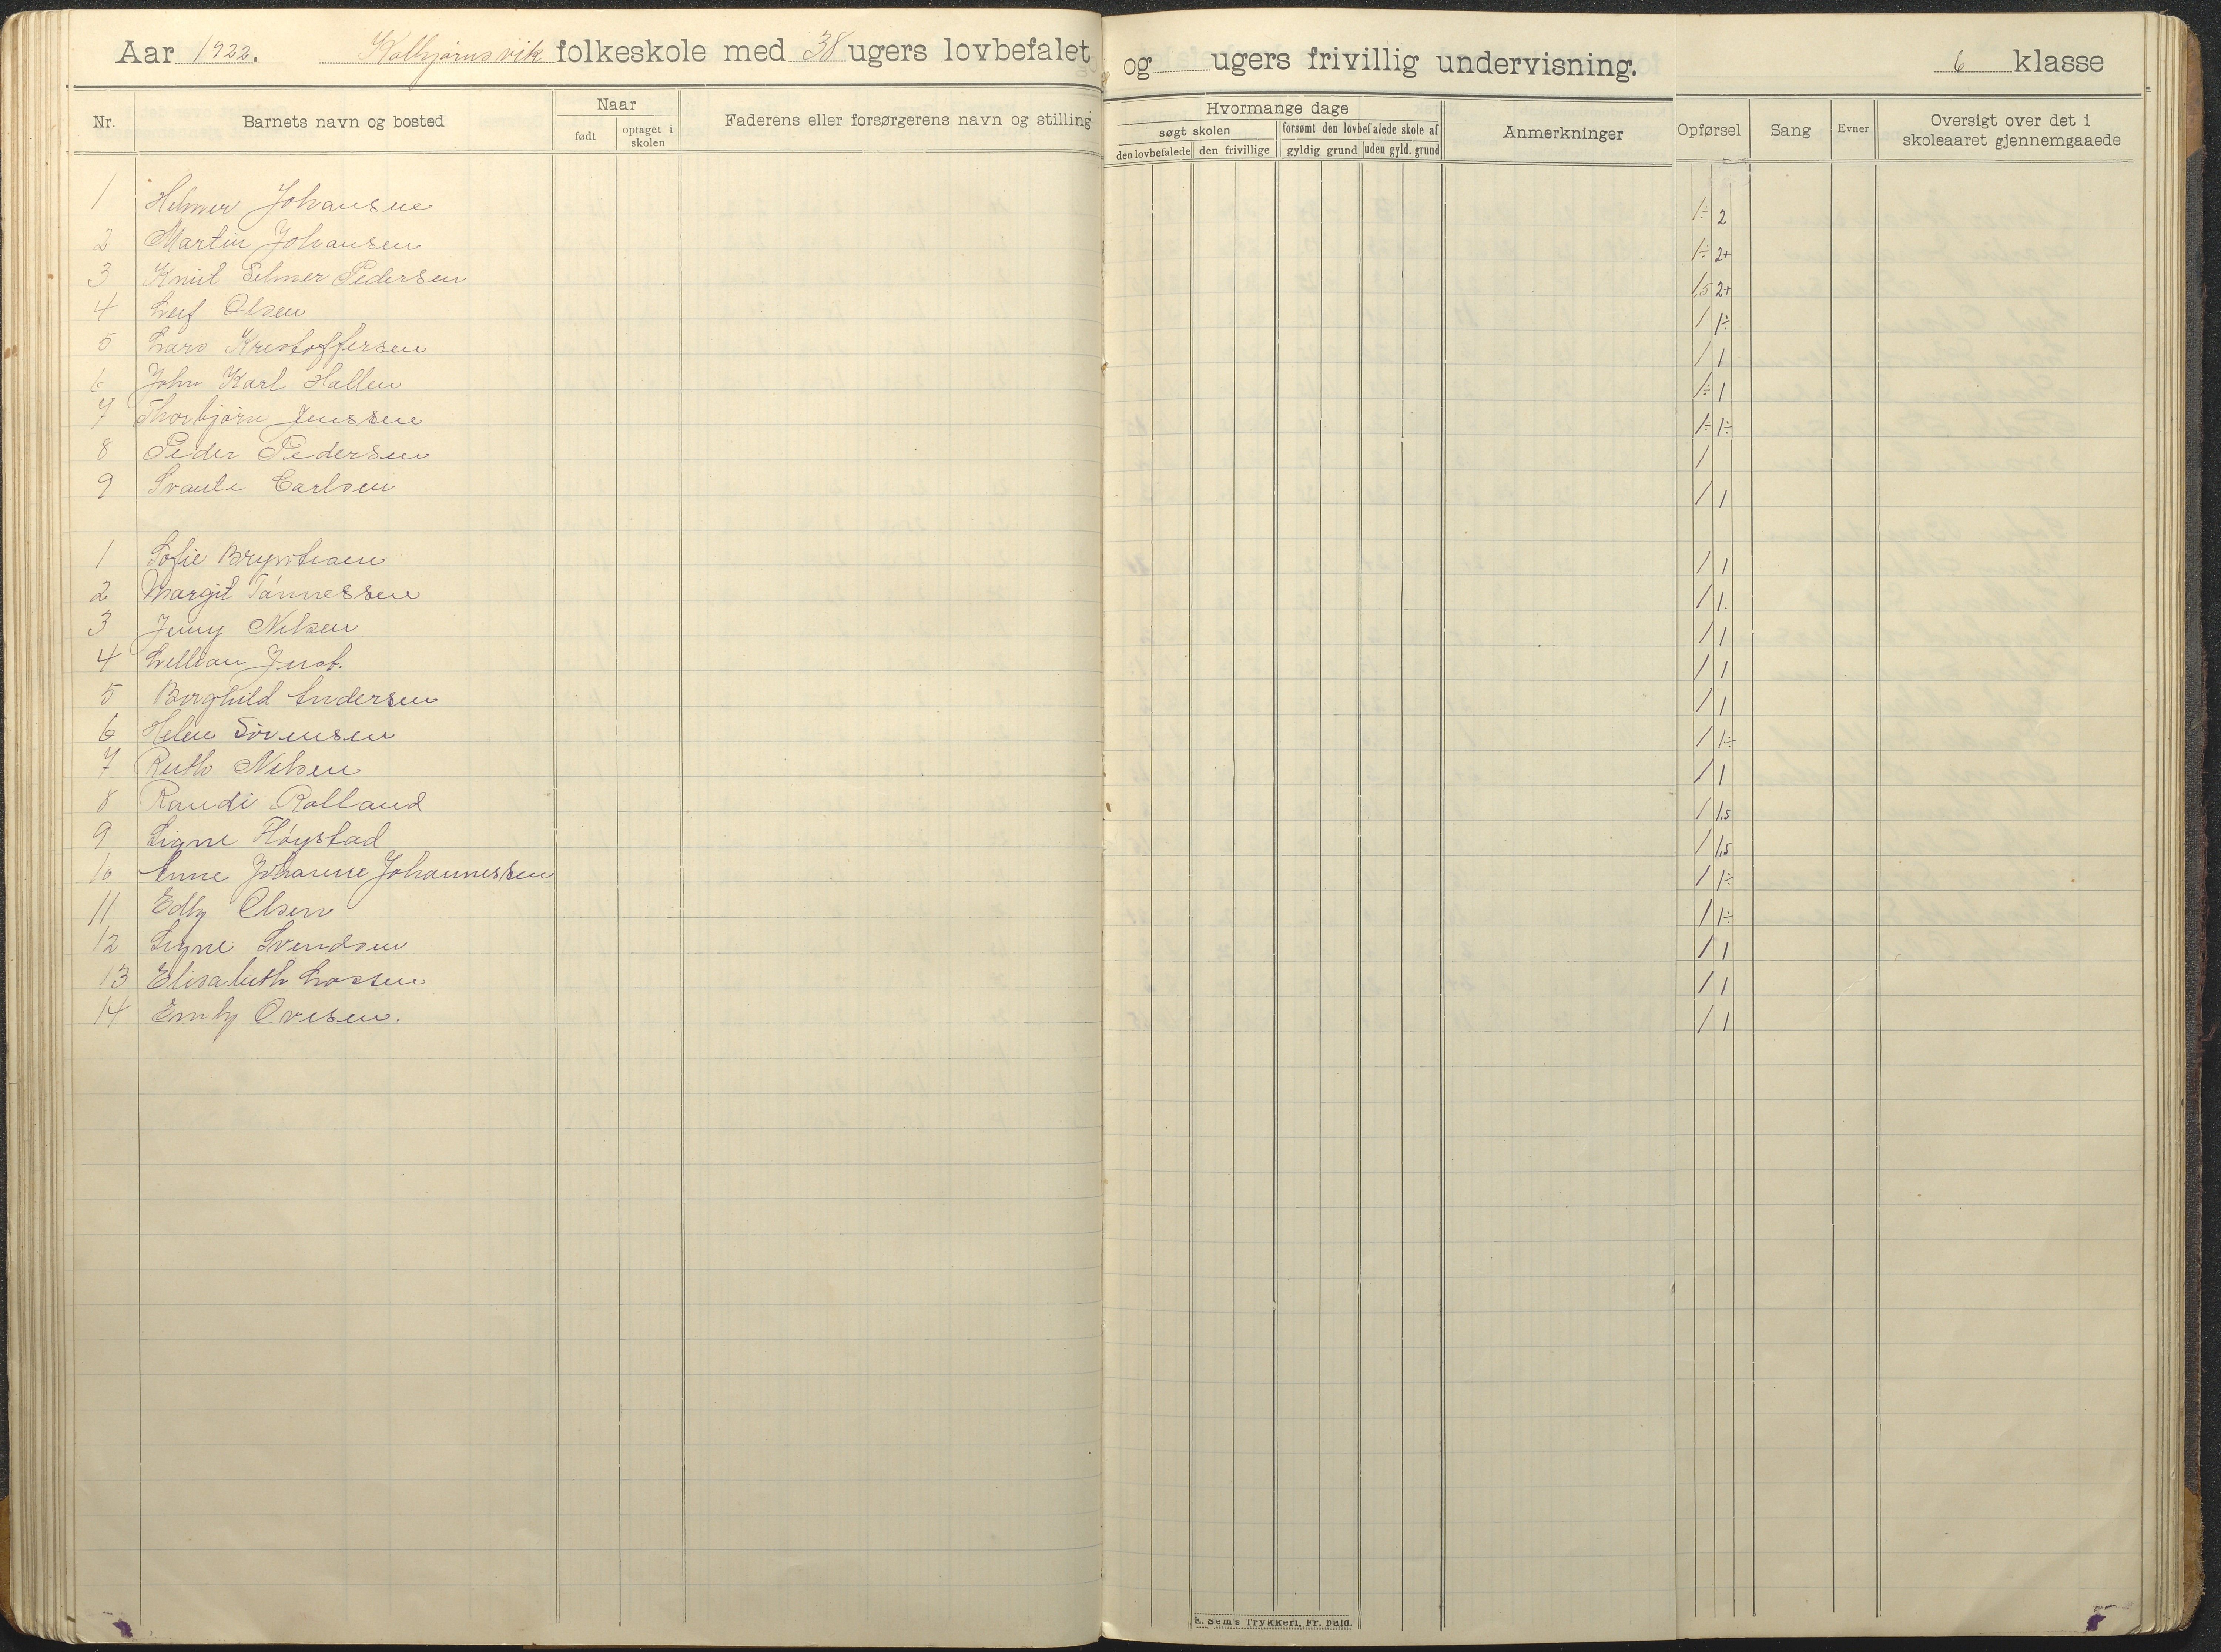 Aar 1922. Kolbjørnsvik folkeskole med 38 ugers lovbefalet og ugers frivillig undervisning. 6 klasse
Nr. Barnets navn og bosted Naar født optaget i skolen Faderens eller forsørgerens navn og stilling Hvormange dage søgt skolen den lovbefalede den frivillige forsømt den lovbefalede skole af gyldig grund uden gyld. grund Anmerkninger Opførsel Sang Evner Oversigt over det i skoleaaret gjennemgaaede
1 Helmer Johansen 1÷ 2
2 Martin Johansen 1÷ 2+
3 Knut Selmer Pedersen 1,5 2+
4 Leif Olsen 1 1÷
5 Lars Kristoffersen 1 1
6 John Karl Hallen 1÷ 1
7 Thorbjørn Jenssen 1÷ 1÷
8 Peder Pedersen 1
9 Svante Carlsen 1 1
1 Sofie 1 1
2 Margit Tønnessen 1 1.
3 Jenny Nilsen 1 1
4 Lillian Just. 1 1
5 Borghild Andersen 1 1
6 Helene Sørensen 1 1÷
7 Ruth Nilsen 1 1
8 Randi Rolland 1 1,5
9 Signe Høystad 1 1,5
10 Anne Johanne Johannessen 1 1÷
11 Edly Olsen 1 1÷
12 Signe Svendsen 1 1
13 Elisabeth Larsen 1 1
14 Emly Ovesen. 1 1
E. Sem's Trykkeri, Fr.hald.